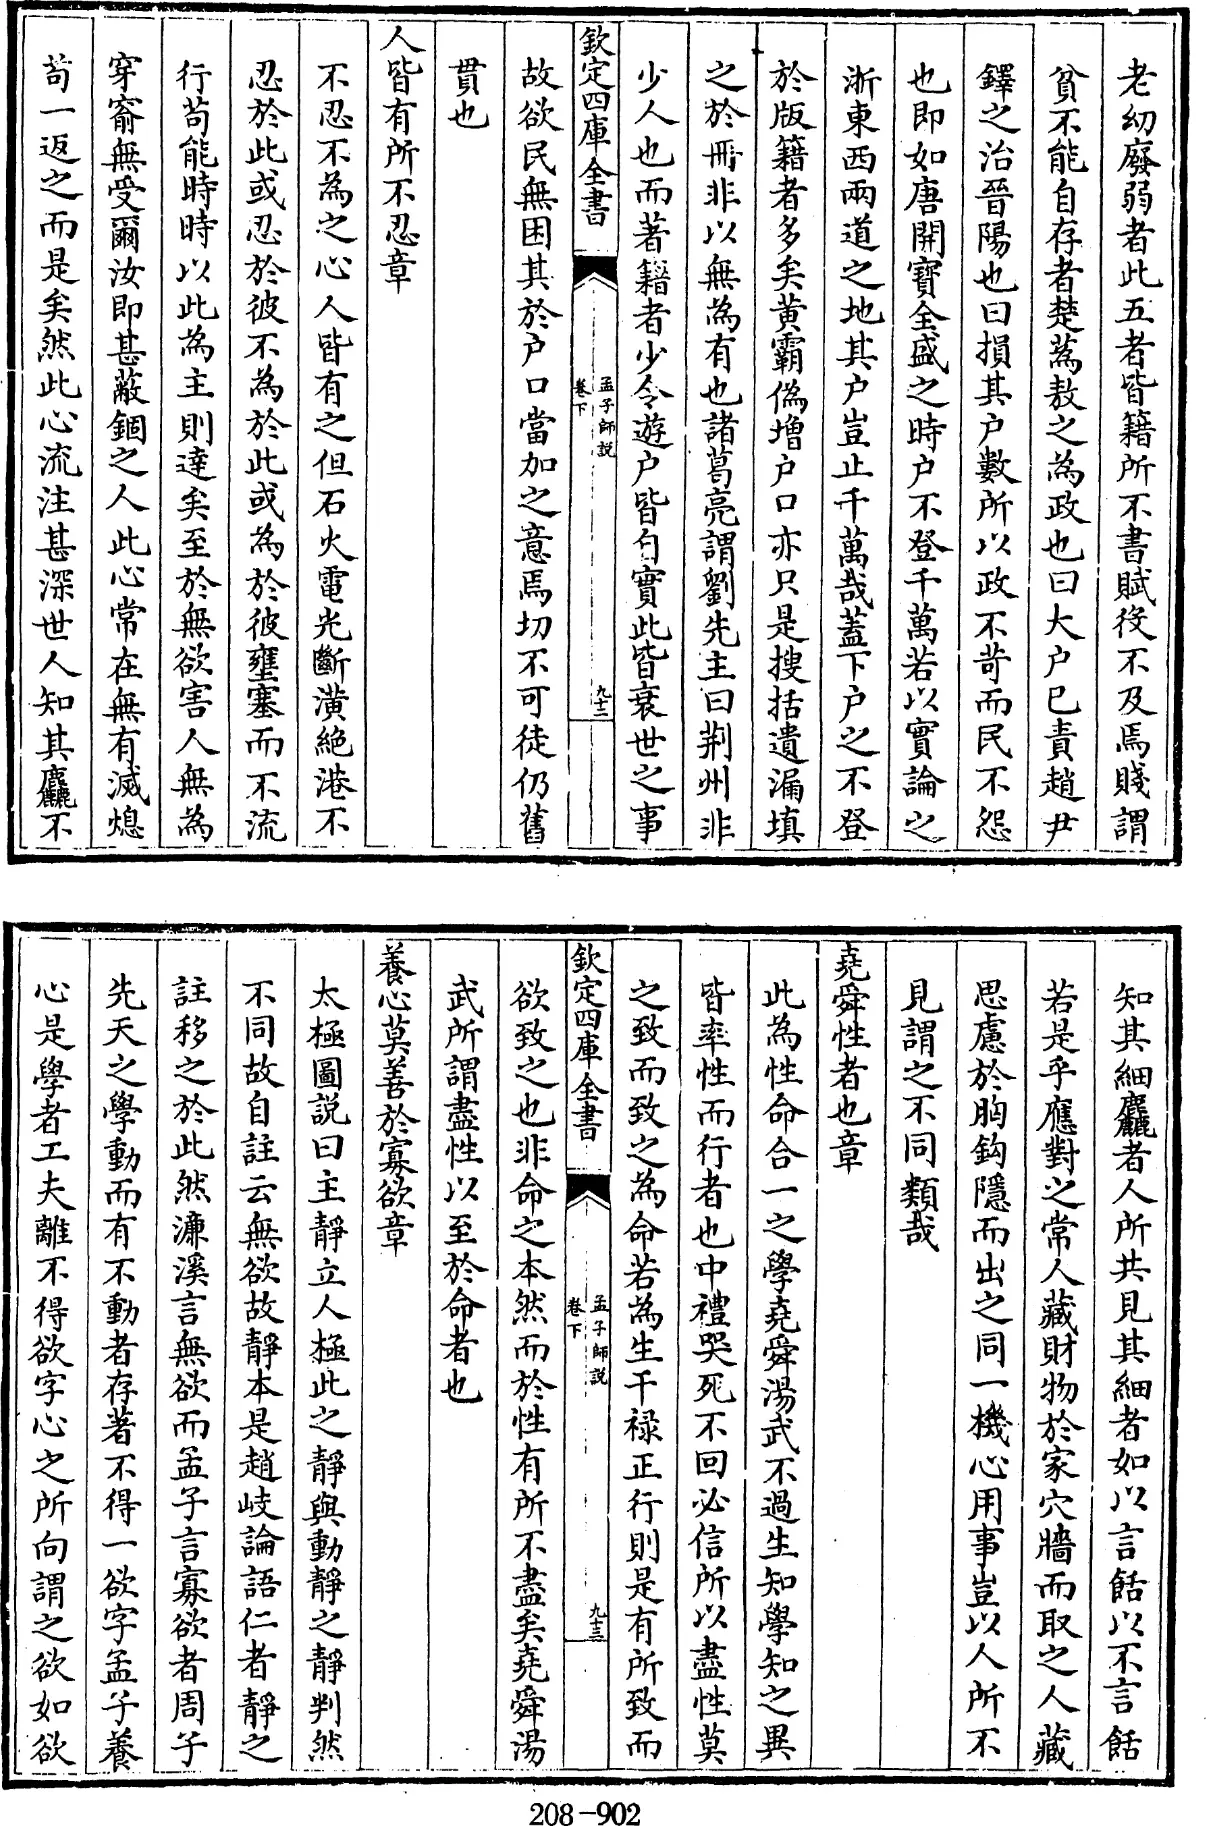 老幼廢弱者此五者皆籍所不書賦役不及焉賤謂
貧不能自存者楚蒍敖之為政也曰大户已責趙尹
鐸之治晉陽也曰損其户數所以政不苛而民不怨
也即如唐開寶全盛之時户不登千萬若以實論之
浙東西兩道之地其户豈止千萬哉蓋下户之不登
於版籍者多矣黄霸僞增户口亦只是搜括遺漏填
之於冊非以無為有也諸葛亮謂劉先主曰荆州非
少人也而著籍者少令遊户皆自實此皆衰世之事
欽定四庫全書
孟子師説
卷下
九十二
故欲民無困其於户口當加之意焉切不可徒仍舊
貫也
人皆有所不忍章
不忍不為之心人皆有之但石火電光斷潢絶港不
忍於此或忍於彼不為於此或為於彼壅塞而不流
行苟能時時以此為主則達矣至於無欲害人無為
穿窬無受爾汝即甚蔽錮之人此心常在無有滅熄
苟一返之而是矣然此心流注甚深世人知其麤不
知其細麤者人所共見其細者如以言餂以不言餂
若是乎應對之常人藏財物於家穴牆而取之人藏
思慮於胸鈎隱而出之同一機心用事豈以人所不
見謂之不同類哉
堯舜性者也章
此為性命合一之學堯舜湯武不過生知學知之異
皆率性而行者也中禮哭死不回必信所以盡性莫
之致而致之為命若為生干禄正行則是有所致而
欽定四庫全書
孟子師説
卷下
九十三
欲致之也非命之本然而於性有所不盡矣堯舜湯
武所謂盡性以至於命者也
養心莫善於寡欲章
太極圖説曰主靜立人極此之靜與動靜之靜判然
不同故自註云無欲故靜本是趙岐論語仁者靜之
註移之於此然濂溪言無欲而孟子言寡欲者周子
先天之學動而有不動者存著不得一欲字孟子養
心是學者工夫離不得欲字心之所向謂之欲如欲
208-902